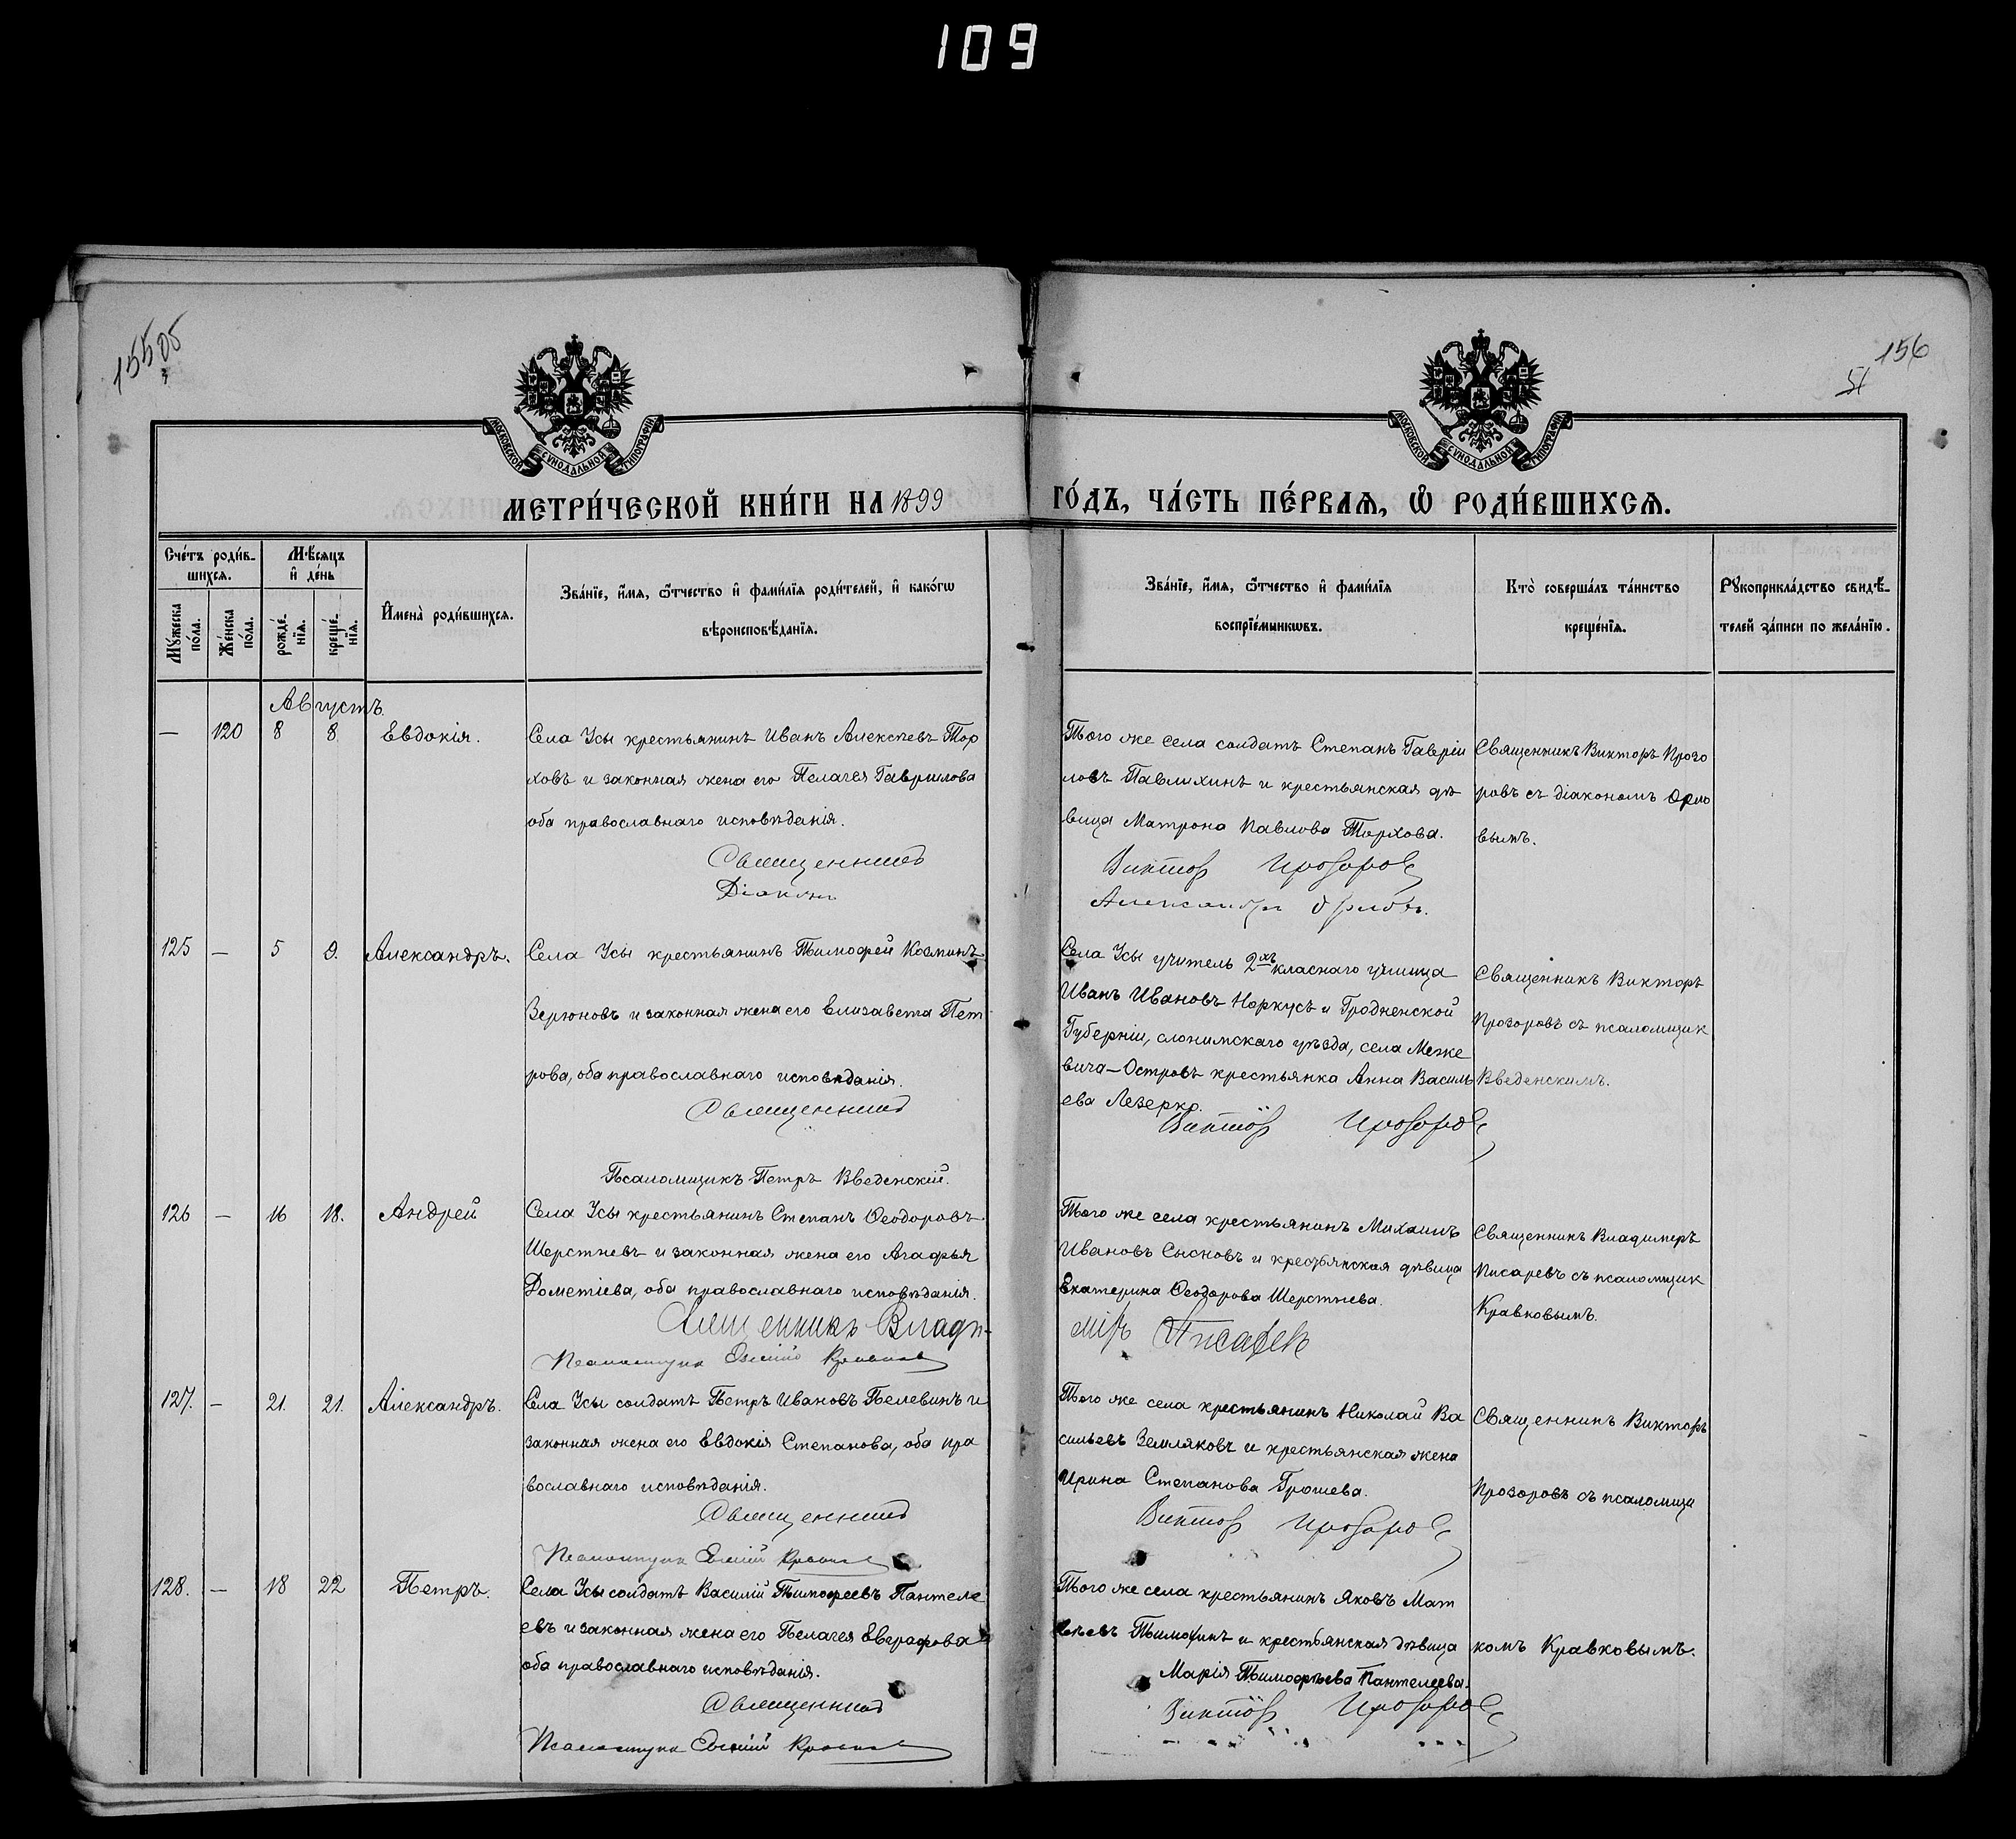 109
155 об
156
51
МОСКОВСКОЙ СѴНОДАЛЬНОЙ ТИПОГРАФІИ
МОСКОВСКОЙ СѴНОДАЛЬНОЙ ТИПОГРАФІИ
МЕТРИ́ЧЕСКОЙ КНИ́ГИ НА 1899 ГО́ДЪ, ЧА́СТЬ ПЕ́РВАЯ, Ѽ РОДИ́ВШИХСЯ.
Сче́тъ роди́в-
шихся.
Мѣ́сяцъ
и҆ де́нь
Му́жеска
по́ла.
Же́нска
по́ла.
рожде́-
нїя.
креще́-
нїя.
И҆мена̀ роди́вшихся.
Зва́нїе, и҆́мя, ѻ҆́тчество и҆ фами́лїя роди́телей, и҆ како́гѡ
вѣроисповѣ́данїя.
Зва́нїе, и҆́мя, ѻ҆́тчество и҆ фами́лїя
воспрїе́мникѡвъ.
Кто̀ соверша́лъ та́инство
креще́нїя.
Рꙋкоприкла́дство свидѣ́-
телей за́писи по жела́нїю.
Августъ.
— 120 8 8 Евдокія.
Села Усы крестьянинъ Иванъ Алексѣевъ Тор
ховъ и законная жена его Пелагея Гаврилова
оба православнаго исповѣданія.
Священникъ
Діаконъ
Того же села солдатъ Степанъ Гавріи
ловъ Павлихинъ и крестьянская дѣ
вица Матрона Павлова Торхова.
Викторъ Прозоровъ
Александръ Орловъ.
Священникъ Викторъ Прозо
ровъ съ діакономъ Орло
вымъ.
125 — 5 9. Александръ.
Села Усы крестьянинъ Тимофей Козминъ
Зерюновъ и законная жена его Елизавета Пет
рова, оба православнаго исповѣданія.
Священникъ
Псаломщикъ Петръ Введенскій.
Села Усы учитель 2хъ класнаго училища
Иванъ Ивановъ Норкусъ и Гродненской
Губерніи, слонимскаго уѣзда, села Межке
вича-Островъ крестьянка Анна Василь
ева Лезерко.
Викторъ Прозоровъ
Священникъ Викторъ
Прозоровъ съ псаломщик
Введенскимъ.
126 — 16 18. Андрей
Села Усы крестьянинъ Степанъ Ѳеодоровъ
Шерстневъ и законная жена его Агафья
Дометіева, оба православнаго исповѣданія.
Священникъ Влади-
Псаломщикъ Кравковъ
Того же села крестьянинъ Михаилъ
Ивановъ Сысновъ и крестьянская дѣвица
Екатерина Ѳеодорова Шерстнева.
міръ Писаревъ
Священникъ Владимеръ
Писаревъ съ псаломщик
Кравковымъ.
127. — 21. 21. Александръ.
Села Усы солдатъ Петръ Ивановъ Пелевинъ и
законная жена его Евдокія Степанова, оба пра
вославнаго исповѣданія.
Священникъ
Псаломщикъ Кравковъ
Того же села крестьянинъ Николай Ва
сильевъ Земляковъ и крестьянская жена
Ирина Степанова Грошева.
Викторъ Прозоровъ
Священникъ Викторъ
Прозоровъ съ псаломщи
128. — 18 22 Петръ.
Села Усы солдатъ Василій Тимофеевъ Пантеле
евъ и законная жена его Пелагея Евграфова
оба православнаго исповѣданія.
Священникъ
Псаломщикъ Кравковъ
Того же села крестьянинъ Яковъ Мат
вѣевъ Тимохинъ и крестьянская дѣвица
Марія Тимофѣева Пантелеева.
Викторъ Прозоровъ
комъ Кравковымъ.